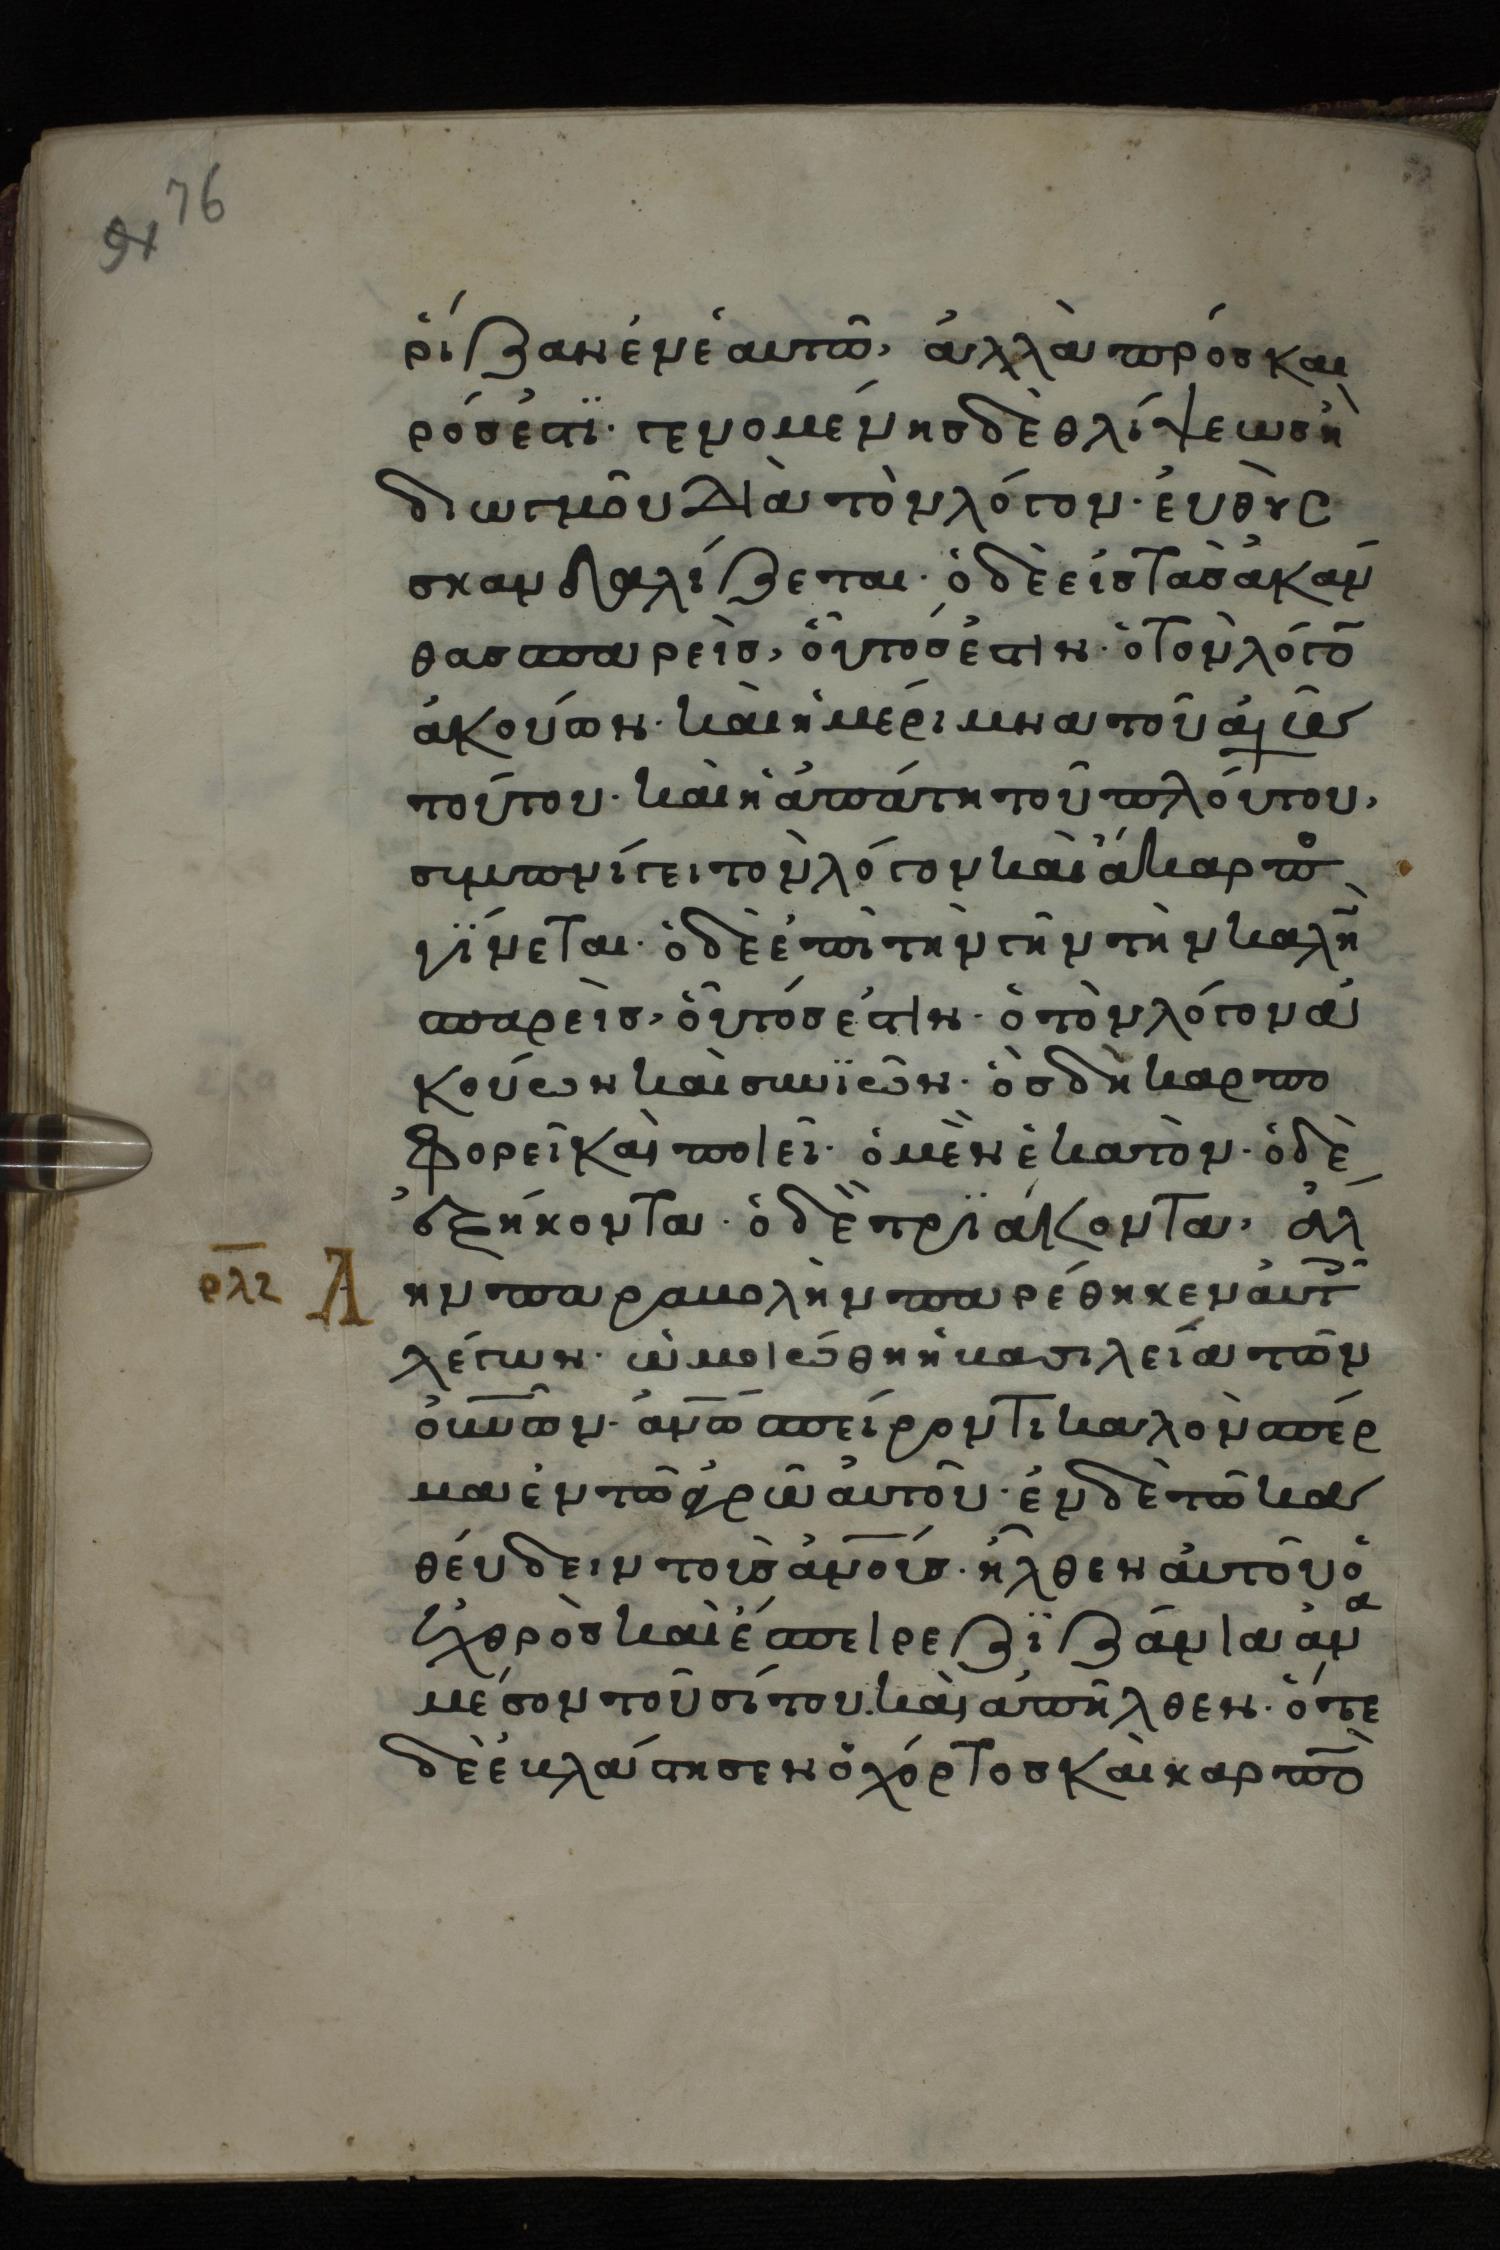 76
ῥίζαν ἐν ἑαυτῶ, ἀλλὰ πρόσκαι
ρός ἐστϊ· γενομένης δὲ θλίψεως ἢ
διωγμοῦ διὰ τὸν λόγον· ἐυθὺς
σκανδαλίζεται· ὁ δὲ εἰς τὰς ἀκάν
θας σπαρεὶς, οὗτος ἐστιν· ὁ τὸν λόγο̅
ἀκούων· καὶ ἡ μέριμνα τοῦ αἰῶν
τούτου· καὶ ἡ ἀπάτη τοῦ πλούτου,
συμπνίγει τὸν λόγον καὶ ἄκαρπο
γΐνεται· ὁ δὲ ἐπὶ τὴν γῆν τὴν καλὴ̅
σπαρεὶς, οὗτός ἐστιν· ὁ τὸν λόγον ἀ
κούων καὶ συνϊῶν· ὃς δὴ καρπο
φορεῖ καὶ ποιεῖ· ὁ μὲν ἑκατὸν· ὁ δὲ
ἑξήκοντα· ὁ δὲ τρϊάκοντα, ἀλ
ρλς Λ
ην παραβολὴν παρέθηκεν αὐτ
λέγων· ὡμοιώθη ἡ βασιλεία τῶν
ο̅υ̅ν̅ῶν· ἀν̅ω̅ σπείροντι καλὸν σπέρ
μα ἐν τῶ ἀγρῶ ἀυτοῦ· ἐν δὲ τῶ κα
θέυδειν τοὺς ἀν̅ο̅υς· ἦλθεν ἀυτοῦ ὁ
ἐχθρὸς καὶ ἔσπειρε ζϊζάνια ἀν
α
μέσον τοῦ σίτου. καὶ ἀπῆλθεν· ὅτε
δὲ ἐβλάστησεν ὁ χόρτος καὶ καρπὸ̅